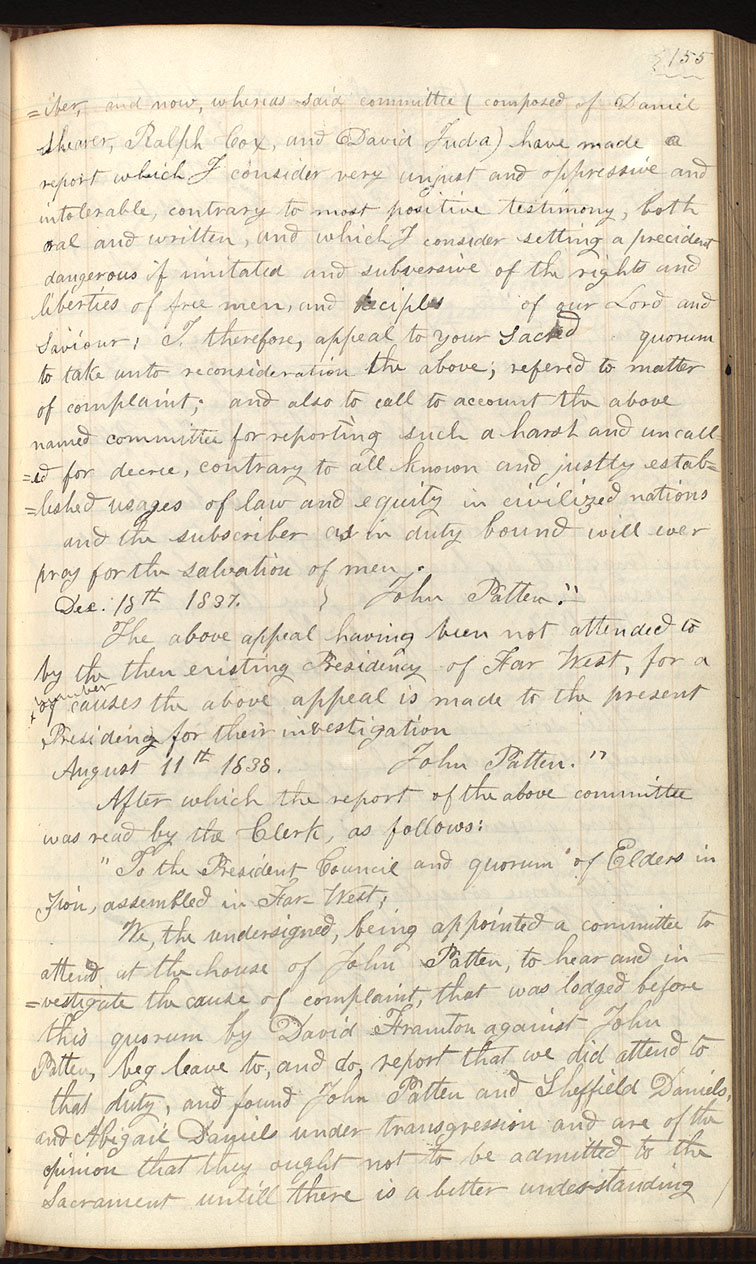 155
=iber, and now, whereas said committee ( composed of Daniel
Shearer, Ralph Cox, and David Juda) have made a
report which I consider very unjust and oppressive and
intolerable, contrary to most positive testimony, both
oral and written, and which I consider setting a precident
dangerous if imitated and subversive of the rights and
liberties of free men, and deciples of our Lord and
Saviour; I, therefore, appeal to your Sacred quorum
to take unto reconsideration the above; refered to matter
of complaint; and also to call to account the above
named committee for reporting such a harsh and uncall-
=ed for decree, contrary to all known and justly estab=
=lished usages of law and equity in civilized nations
and the subscriber as in duty bound will ever
pray for the salvation of men.
Dec. 18th 1837. } John Patten."
The above appeal having been not attended to
by the then existing Presidency of Far West, for a
+ number
of causes the above appeal is made to the present
Presidency for their investigation
August 11th 1838. John Patten."
After which the report of the above committee
was read by the Clerk, as follows:
"To the President Council and quorum of Elders in
Zion, assembled in Far West;
We, the undersigned, being appointed a committee to
attend at the house of John Patten, to hear and in-
=vestigate the cause of complaint, that was lodged before
this quorum by David Framton against John
Patten, beg leave to, and do, report that we did attend to
that duty, and found John Patten and Sheffield Daniels,
and Abigail Daniels under transgression and are of the
opinion that they ought not to be admitted to the
Sacrament untill there is a better understanding